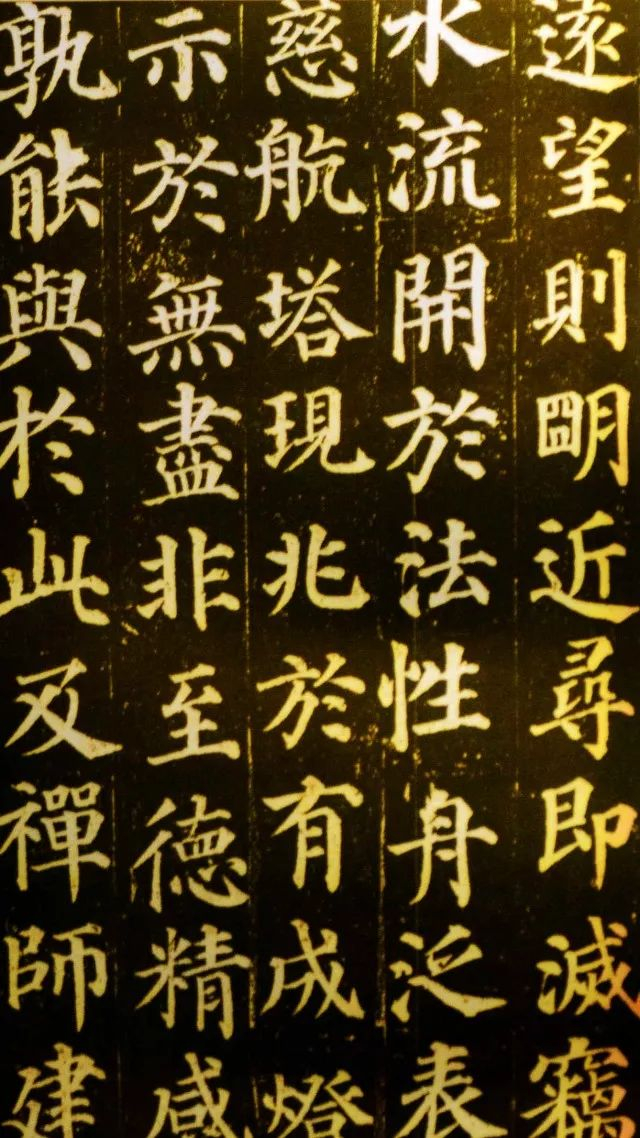 遠望則朙近尋即滅竊
水流開於法性舟泛表
慈航塔現兆於有成燈
示於無盡非至德精感
孰能與於此及禪師建